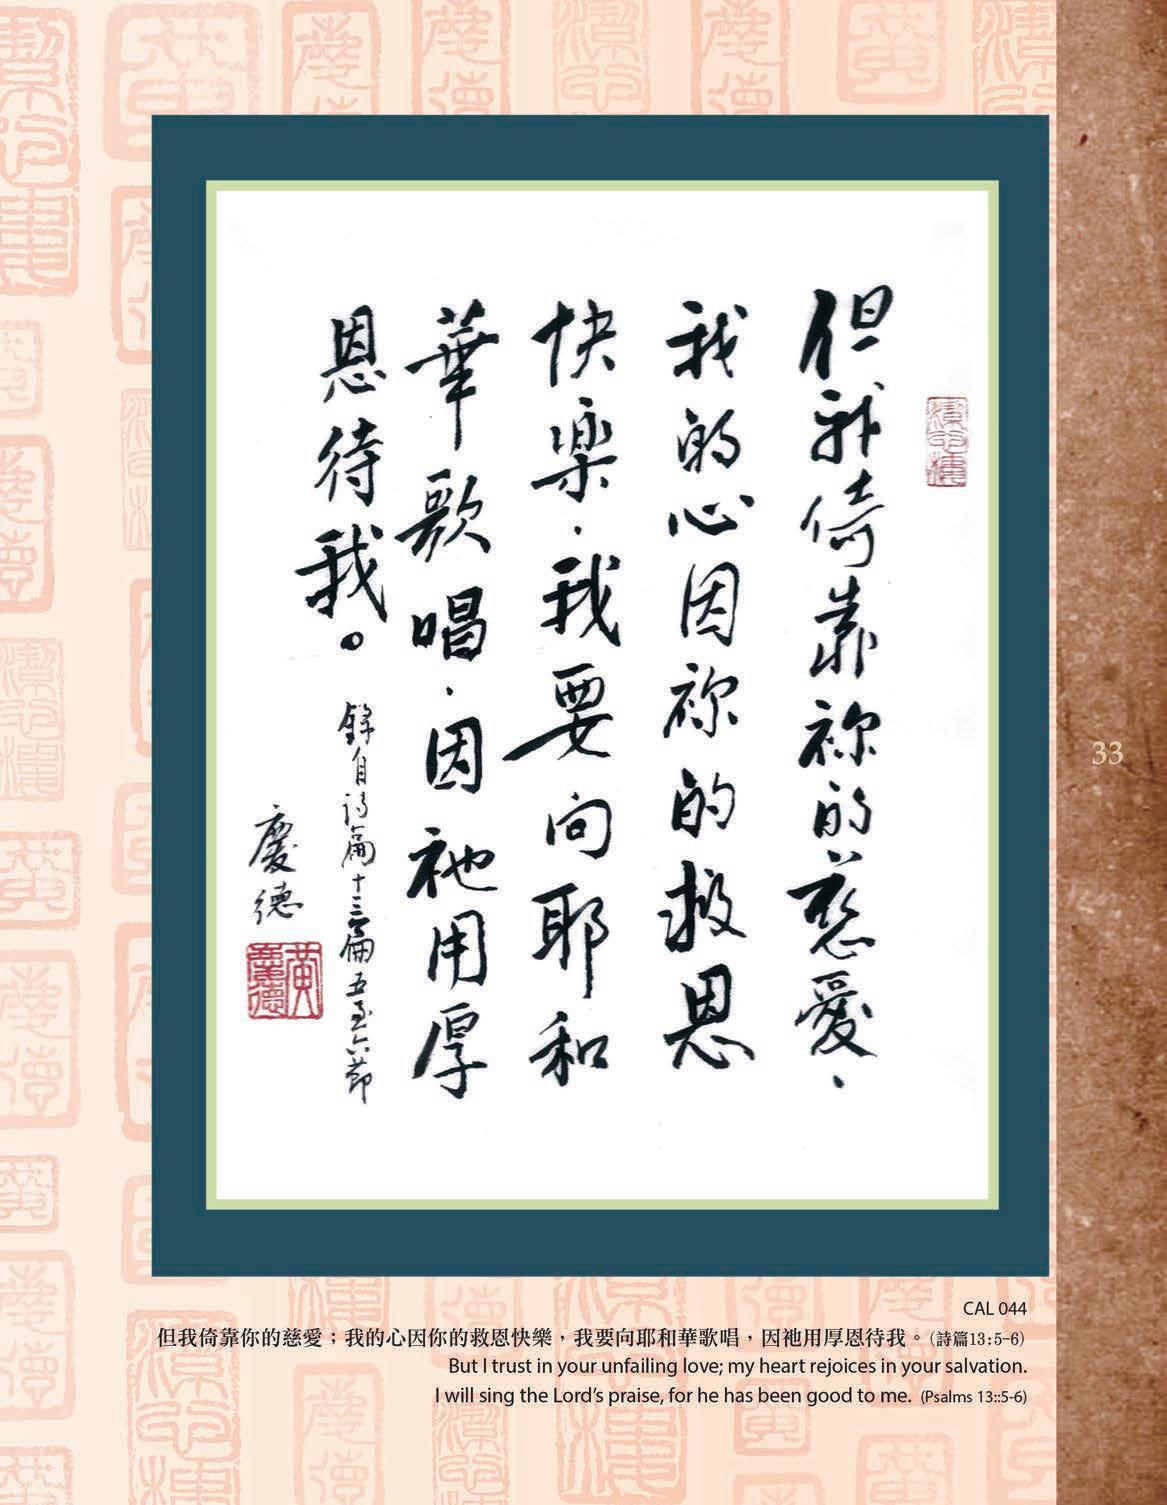 但我倚靠祢的慈愛，
我的心因祢的救恩
快樂，我要向耶和
華歌唱，因祂用厚
恩待我。
錄自詩篇十三篇五至六節
慶德
黃慶德
33
CAL 044
但我倚靠你的慈愛；我的心因你的救恩快樂，我要向耶和華歌唱，因祂用厚恩待我。（詩篇13:5-6）
But I trust in your unfailing love; my heart rejoices in your salvation.
I will sing the Lord’s praise, for he has been good to me. (Psalms 13::5-6)